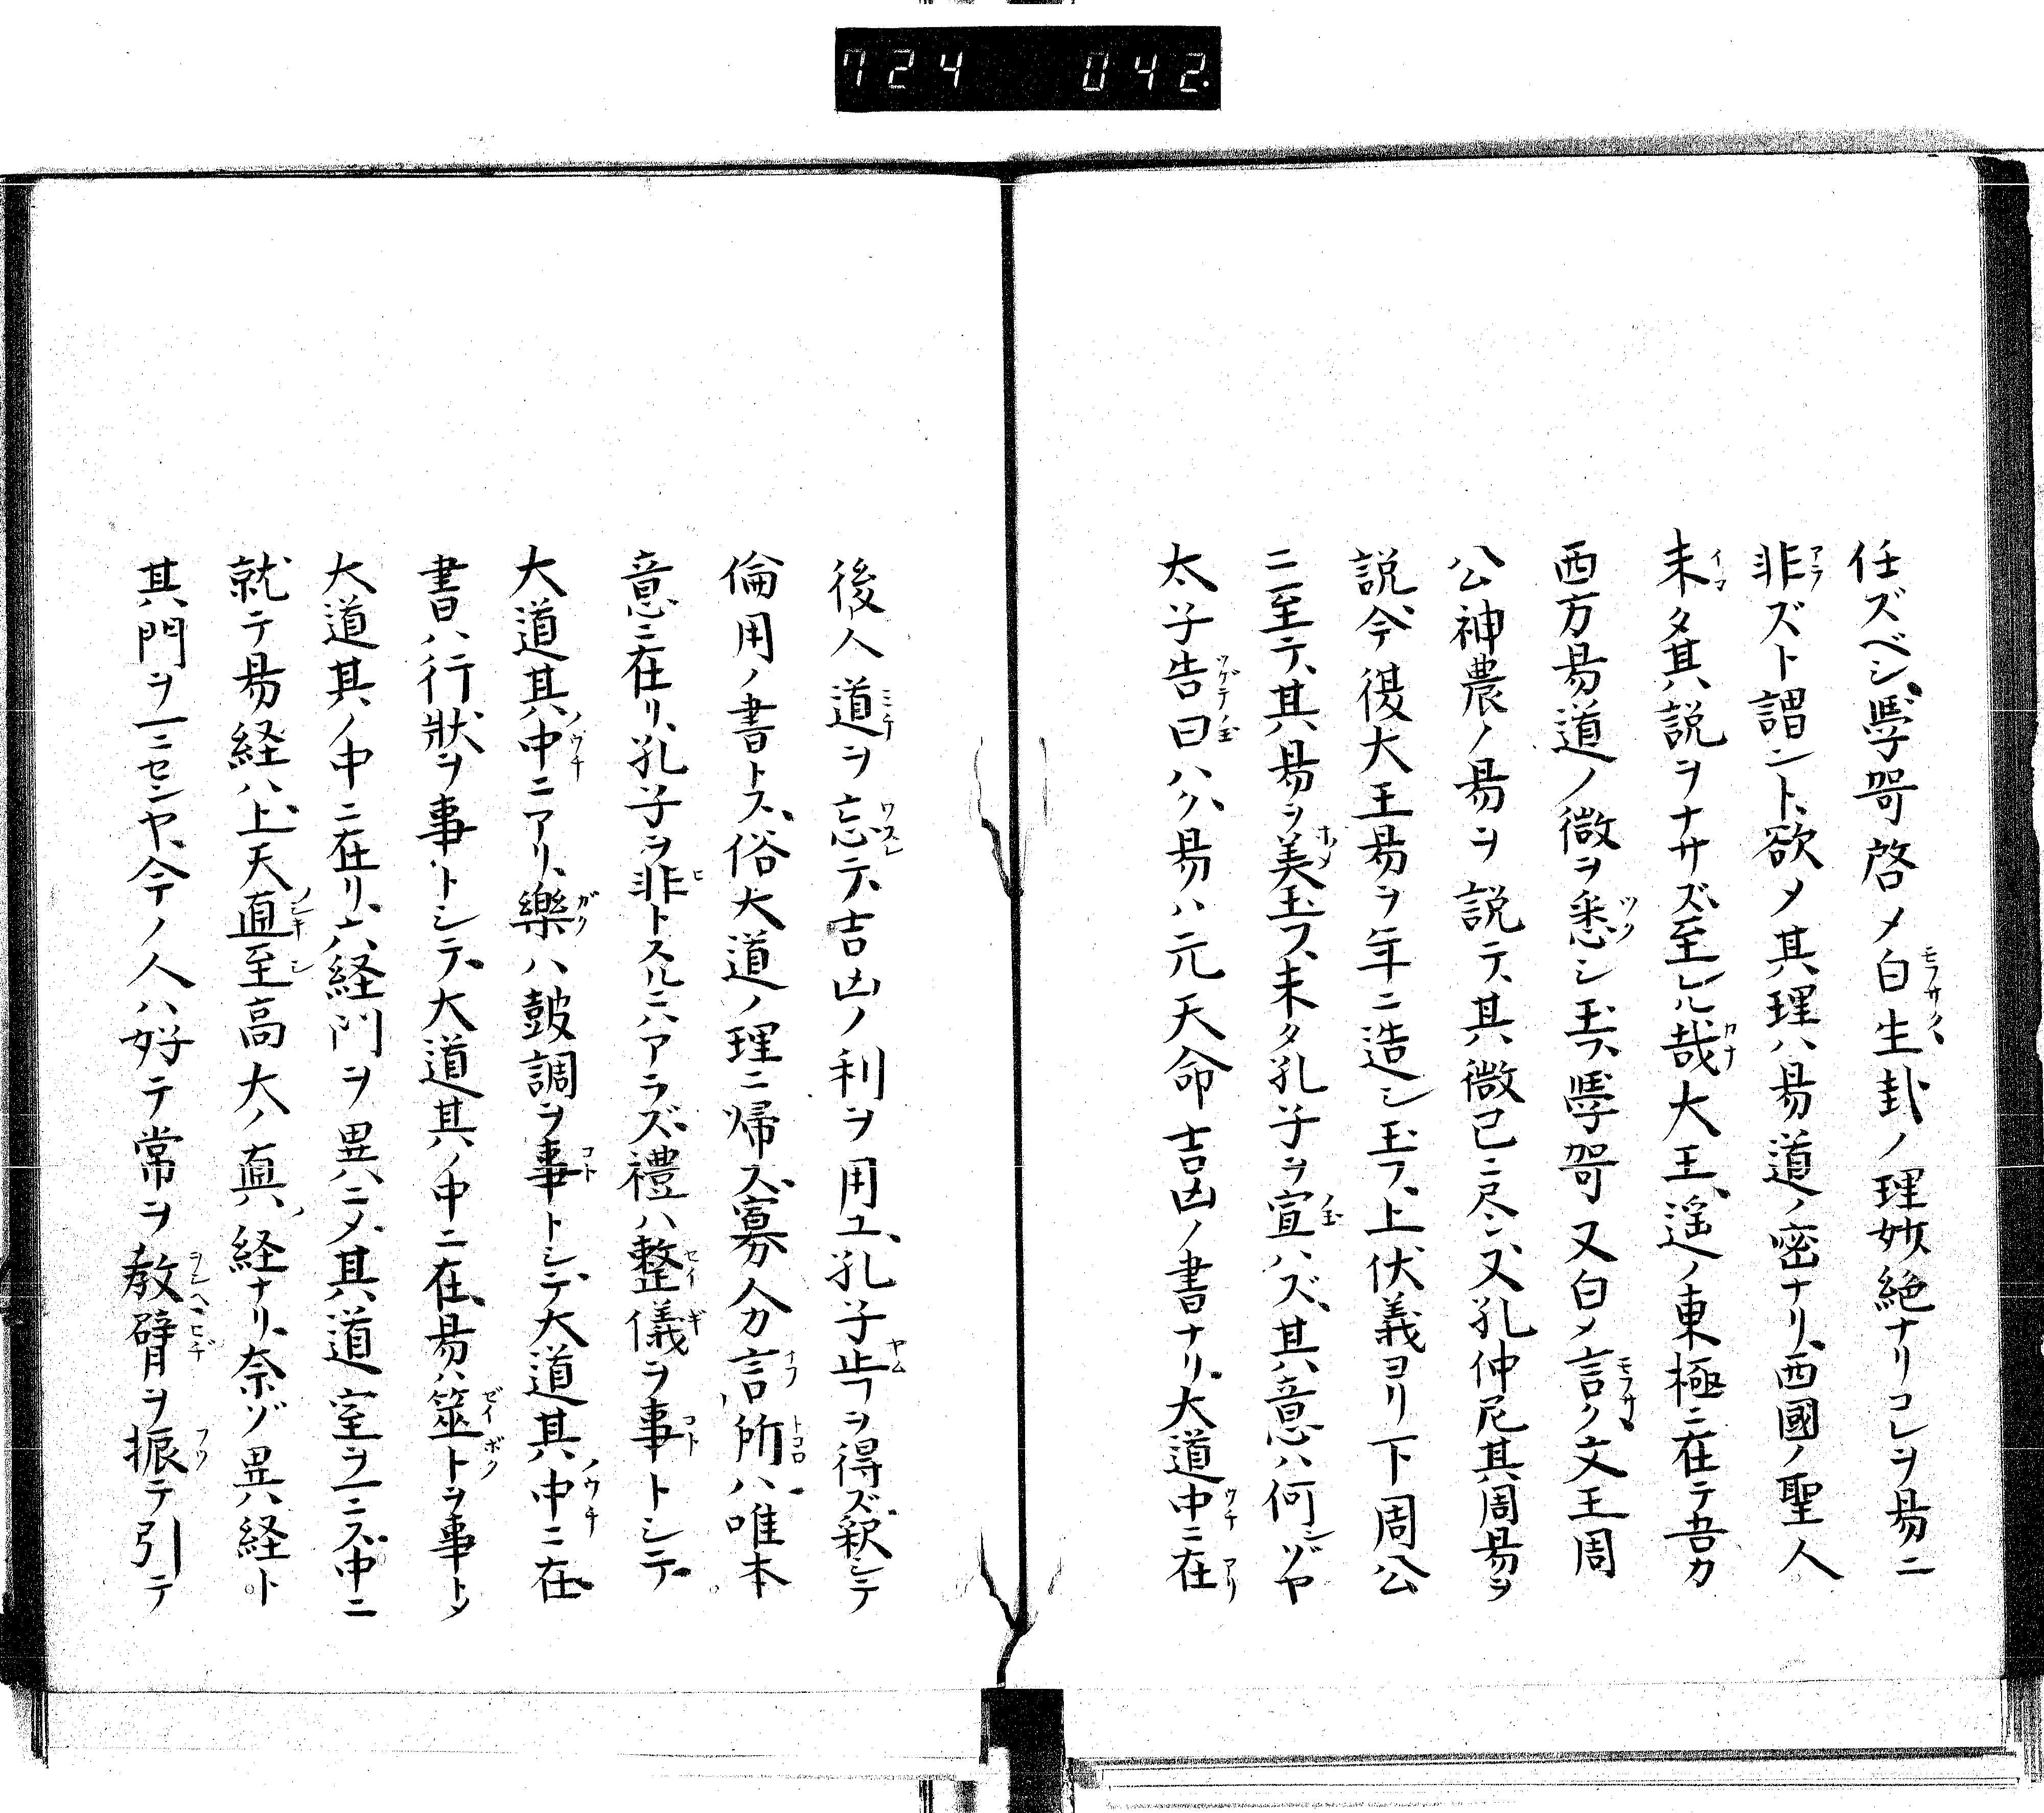 724 042.
任ズベシ、學哿啓メ白生卦ノ理妙絶ナリコレヲ易ニ
非ズト謂ント、欲メ其理ハ易道ノ密ナリ、西國ノ聖人
未タ其説ヲナサズ、至レル哉大王、遥ノ東極ニ在テ吾カ
西方易道ノ微ヲ悉シ玉フ、學哿又白メ言ク文王周
公神農ノ易ヲ説テ、其微已ニ尽シ、又孔仲尼其周易ヲ
説、今復大王易ヲ年ニ造シ玉フ、上伏義ヨリ下周公
ニ至テ、其易ヲ美玉フ、未タ孔子ヲ宣ハズ、其意ハ何ンゾヤ
太子告曰ハク、易ハ元天命吉凶ノ書ナリ、大道中ニ在
後人道ヲ忘テ、吉凶ノ利ヲ用ユ、孔子歩ヲ得ズ、釈シテ
倫用ノ書トス、俗大道ノ理ニ帰ス、寡分力言所ハ、唯本
意ニ在リ、孔子ヲ非トスルニハアラズ、禮ハ整儀ヲ事トシテ、
大道其中ニアリ、樂ハ鼓調ヲ事トシテ、大道其中ニ在、
書ハ行狀ヲ事トシテ、大道其ノ中ニ在、易ハ筮トヲ事トシ
大道其ノ中ニ在リ、六経門ヲ異ニメ、其道室ヲ一ニス、中ニ
就テ易経ハ、上天直至高大ノ真経ナリ、奈ゾ異経ト
其門ヲ一ニセンヤ、今ノ人ハ好テ常ヲ教臂ヲ振テ引テ